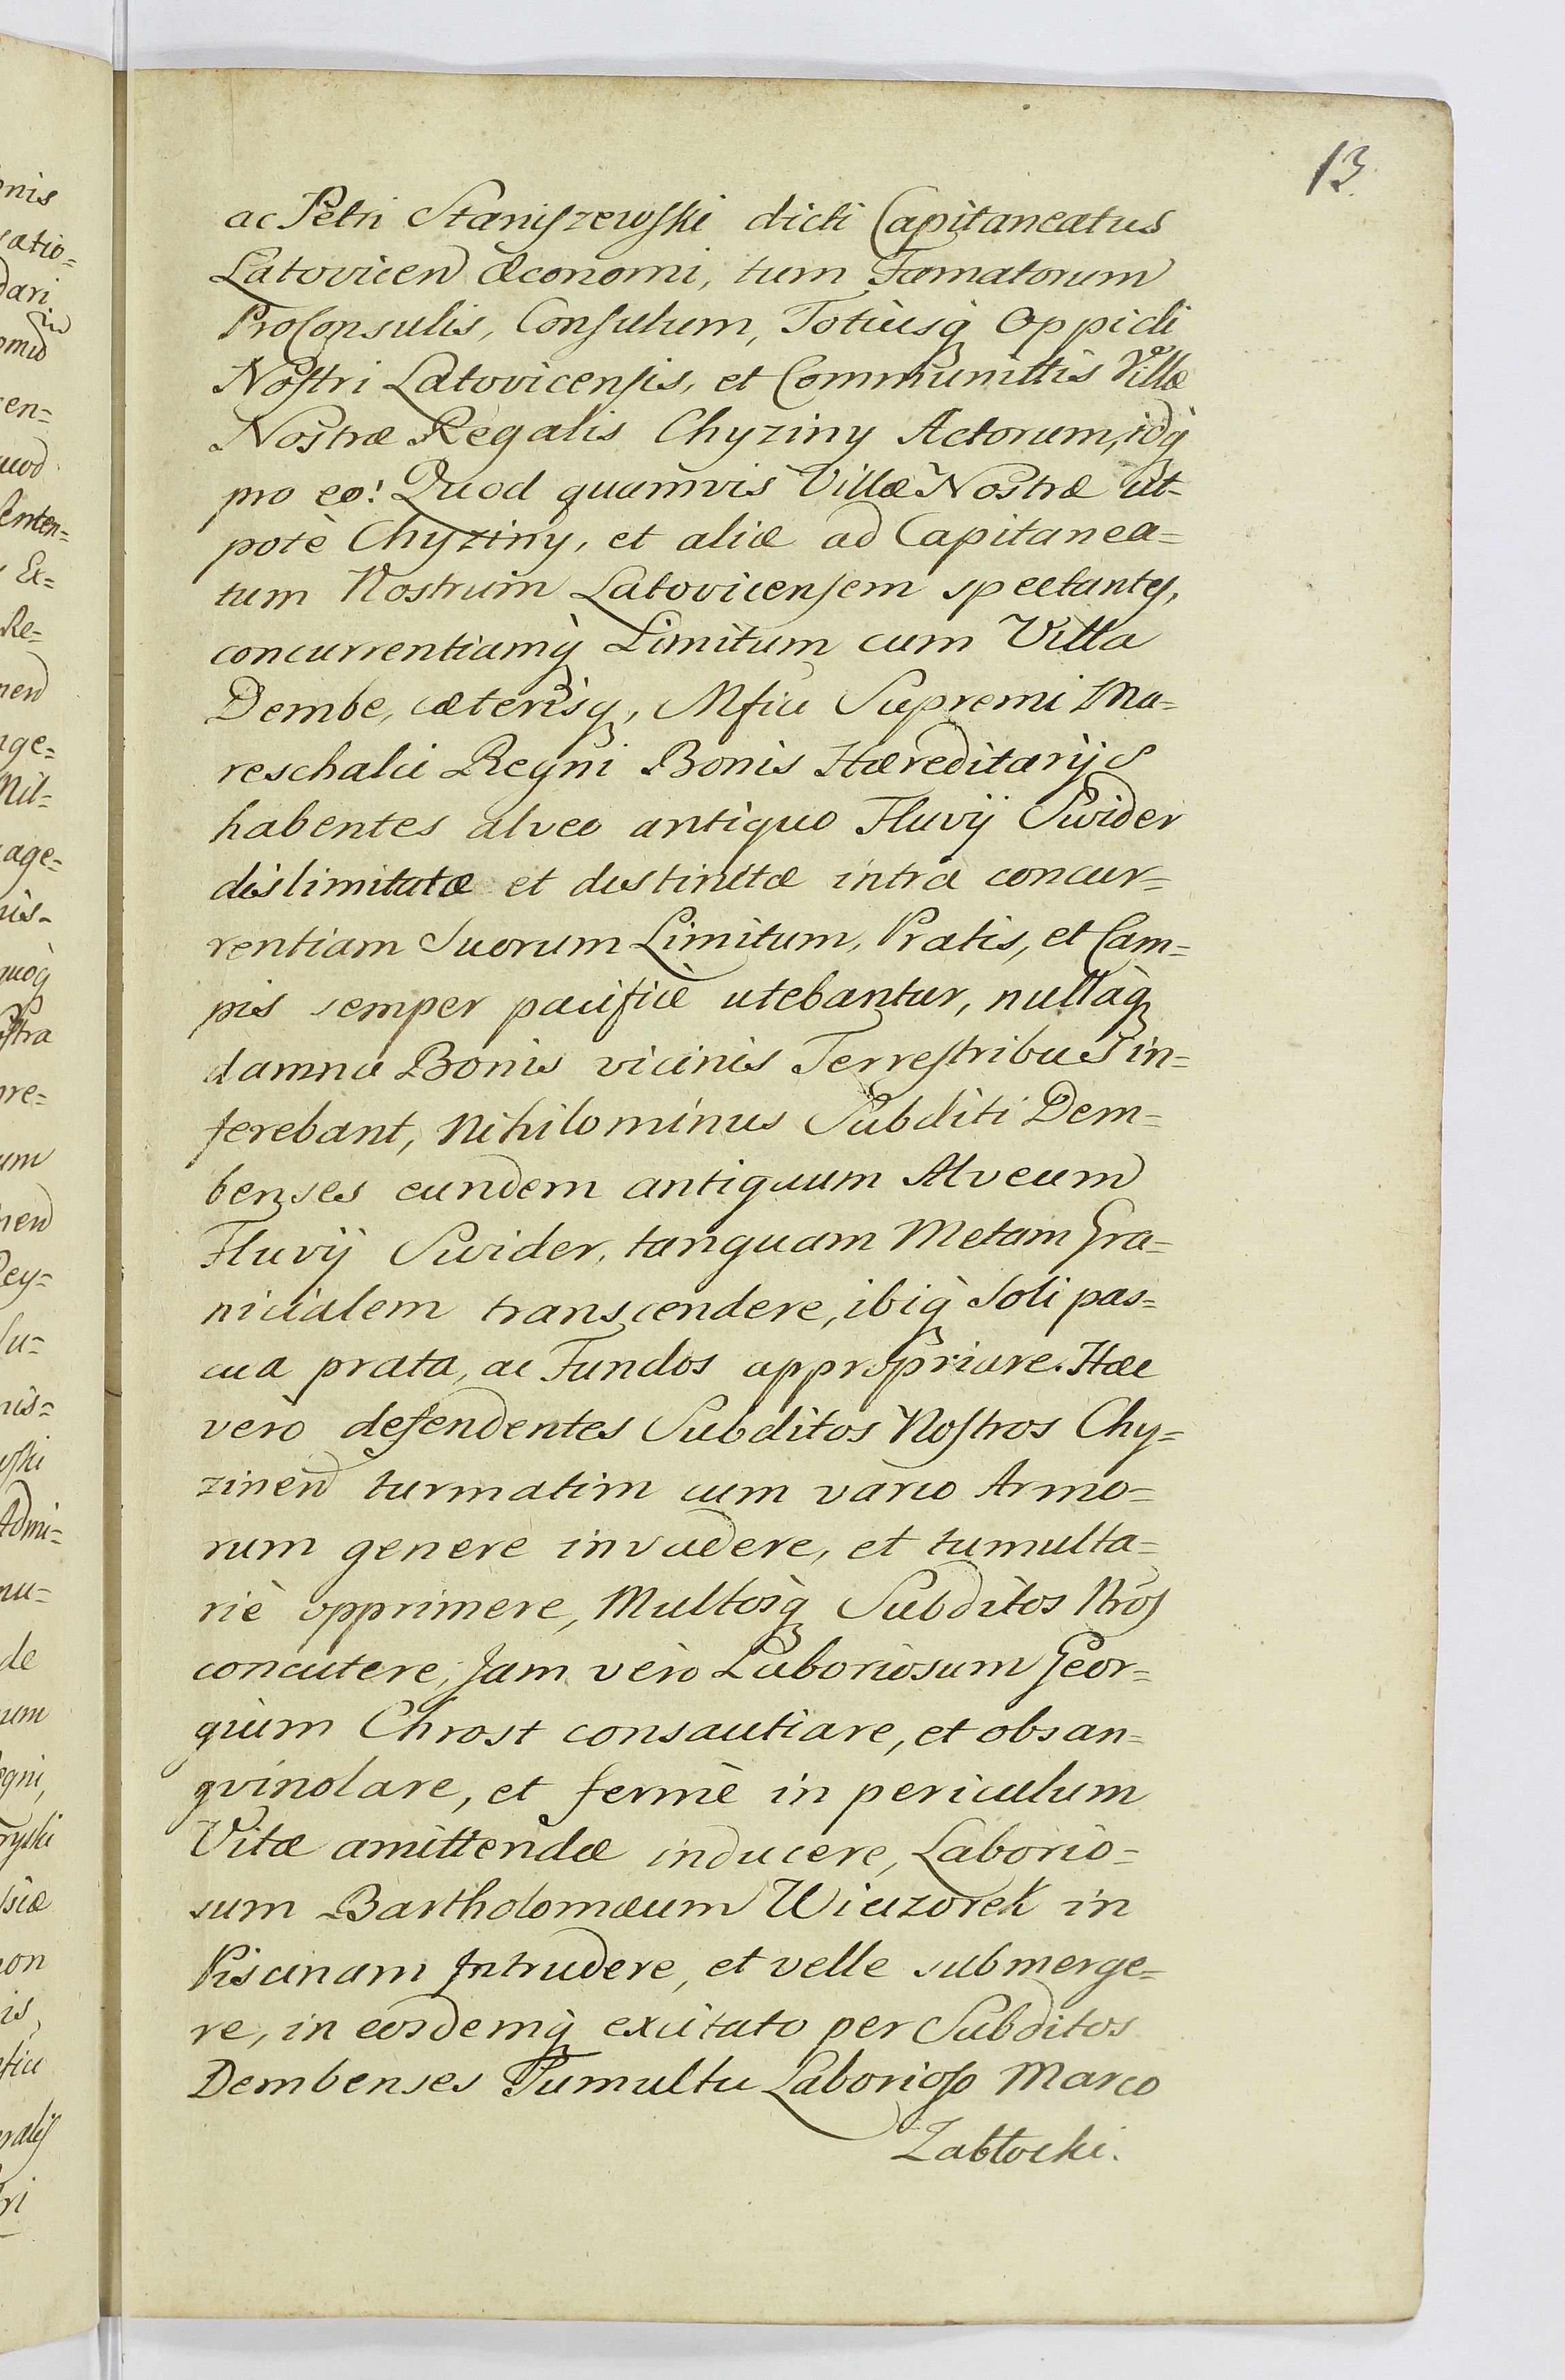 13.
ac Petri Staniszewski dicti Capitaneatus
Latovicen Œconomi, tum Famatorum
ProConsulis, Consulum, Totiusq Oppidi
Nostri Latovicensis, et Communittis Villæ
Nostræ Regalis Chyziny Actorum, idq
pro eo! Quod quamvis Villæ Nostræ ut-
potè Chyziny, et aliæ ad Capitanea=
tum Nostrum Latovicensem spectantes,
concurrentiamq Limitum cum Villa
Dembe, cæterisq, Mfici Supremi Ma=
reschalci Regni Bonis Hæreditarijs
habentes alveo antiquo Fluvij Swider
dislimitatæ et distinctæ intra concur=
rentiam Suorum Limitum, Pratis, et Cam=
pis semper pacificè utebantur, nullaq
damna Bonis vicinis Terrestribus in=
ferebant, Nihilominus Subditi Dem=
benses eundem antiquum Alveum
Fluvij Swider, tanquam Metam Gra=
nicialem transcendere, ibiq Soli pas=
cua prata, ac Fundos appropriare. Hæc
verò defendentes Subditos Nostros Chy=
zinen turmatim cum vario Armo=
rum genere invadere, et tumulta=
riè opprimere, Multosq Subditos Nros
concutere, Jam verò Laboriosum Geor=
gium Chrost consautiare, et obsan=
gvinolare, et fermè in periculum
Vitæ amittendæ inducere, Laborio=
sum Bartholomæum Wieczorek in
Piscinam Intrudere, et velle submerge=
re, in eosdemq excitato per Subditos
Dembenses Tumultu Laborioso Marco
Zabłocki.